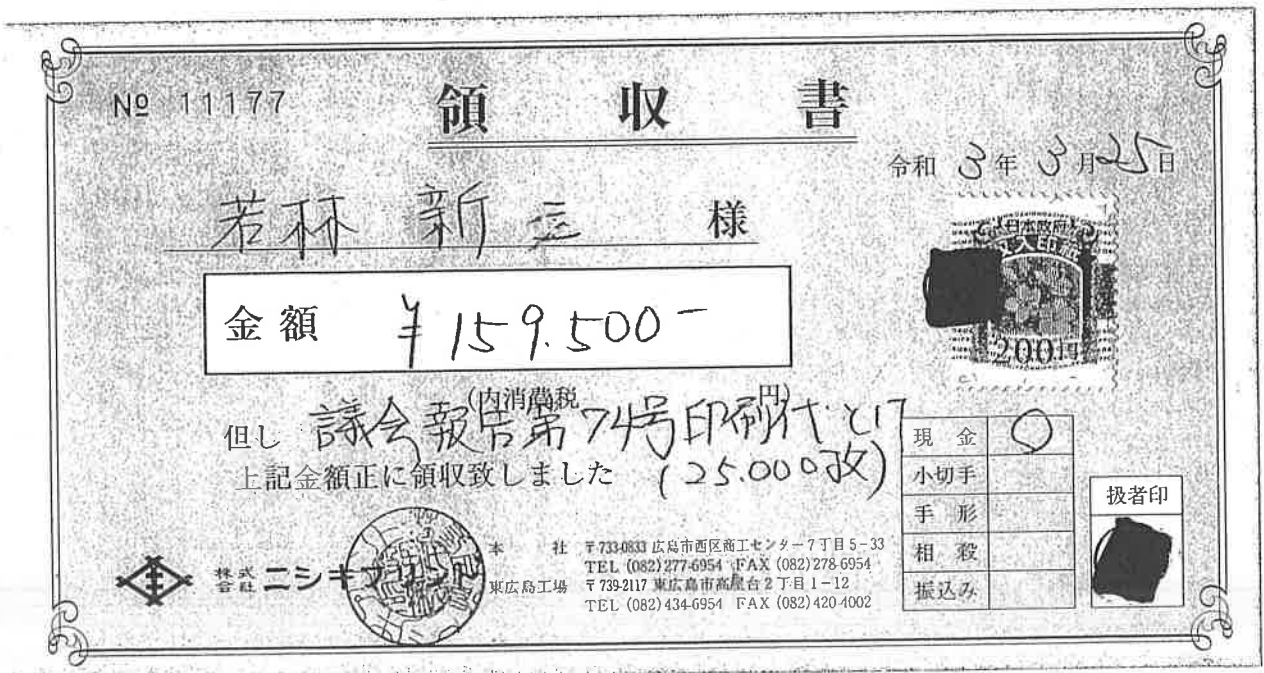 № 11177
領収書
令和 3年 3月25日
若林 新三 様
金額 ¥159.500-
(内消費税 円)
但し 議会報告第74号印刷代として
上記金額正に領収致しました (25.000枚)
日本政府
収入印紙
200円
現金 ○
小切手
手形
相殺
振込み
扱者印
株式会社 ニシキプリント
本社 〒733-0833 広島市西区商工センター7丁目5-33
TEL (082)277-6954 FAX (082)278-6954
東広島工場 〒739-2117 東広島市高屋台2丁目1-12
TEL (082)434-6954 FAX (082)420-4002